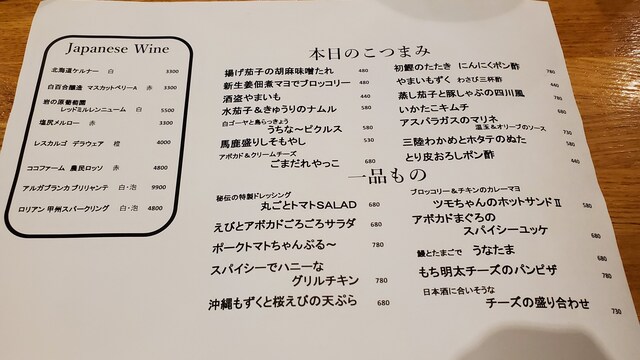 Japanese Wine
北海道ケルナー 白 3300
白百合醸造 マスカットベリーA 赤 3300
岩の原葡萄園
レッドミルレンニューム 白 5500
塩尻メルロー 赤 3300
レスカルゴ デラウェア 橙 4000
ココファーム 農民ロッソ 赤 4800
アルガブランカ ブリリャンテ 白・泡 9900
ロリアン 甲州スパークリング 白・泡 4800
本日のこつまみ
揚げ茄子の胡麻味噌たれ 480
新生姜佃煮マヨでブロッコリー 480
酒盗やまいも 440
水茄子&きゅうりのナムル 580
白ゴーヤと島らっきょう
うちな~ピクルス 580
馬鹿盛りしそもやし 530
アボカド&クリームチーズ
ごまだれやっこ 680
初鰹のたたき にんにくポン酢 780
やまいもずく わさび三杯酢 440
蒸し茄子と豚しゃぶの四川風 780
いかたこキムチ 580
アスパラガスのマリネ
温玉&オリーブのソース 730
三陸わかめとホタテのぬた 580
とり皮おろしポン酢 440
一品もの
秘伝の特製ドレッシング
丸ごとトマトSALAD 680
えびとアボカドごろごろサラダ 680
ポークトマトちゃんぷる~ 780
スパイシーでハニーな
グリルチキン 780
沖縄もずくと桜えびの天ぷら 680
ブロッコリー&チキンのカレーマヨ
ツモちゃんのホットサンドⅡ 580
アボカドまぐろの
スパイシーユッケ 680
鰻とたまごで うなたま 680
もち明太チーズのパンピザ 780
日本酒に合いそうな
チーズの盛り合わせ 730